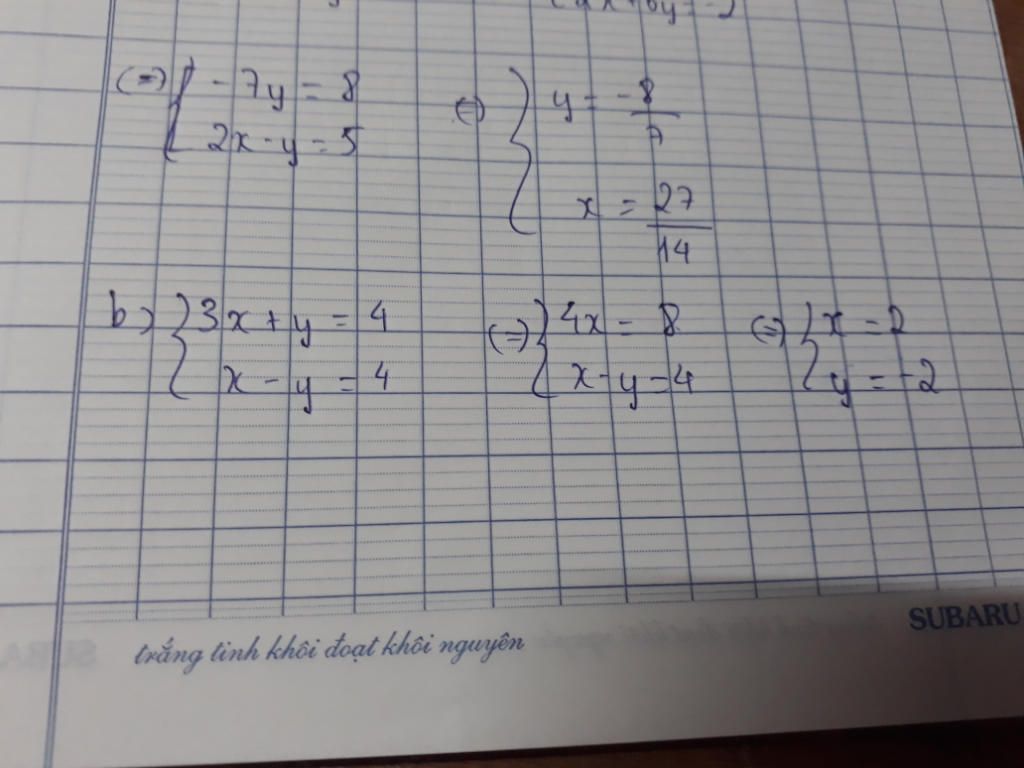 (=) { -7y = 8
2x - y = 5
(=) { y = -8/7
x = 27/14
b) { 3x + y = 4
x - y = 4
(=) { 4x = 8
x - y = 4
(=) { x = 2
y = -2
SUBARU
trắng tinh khôi đoạt khôi nguyên